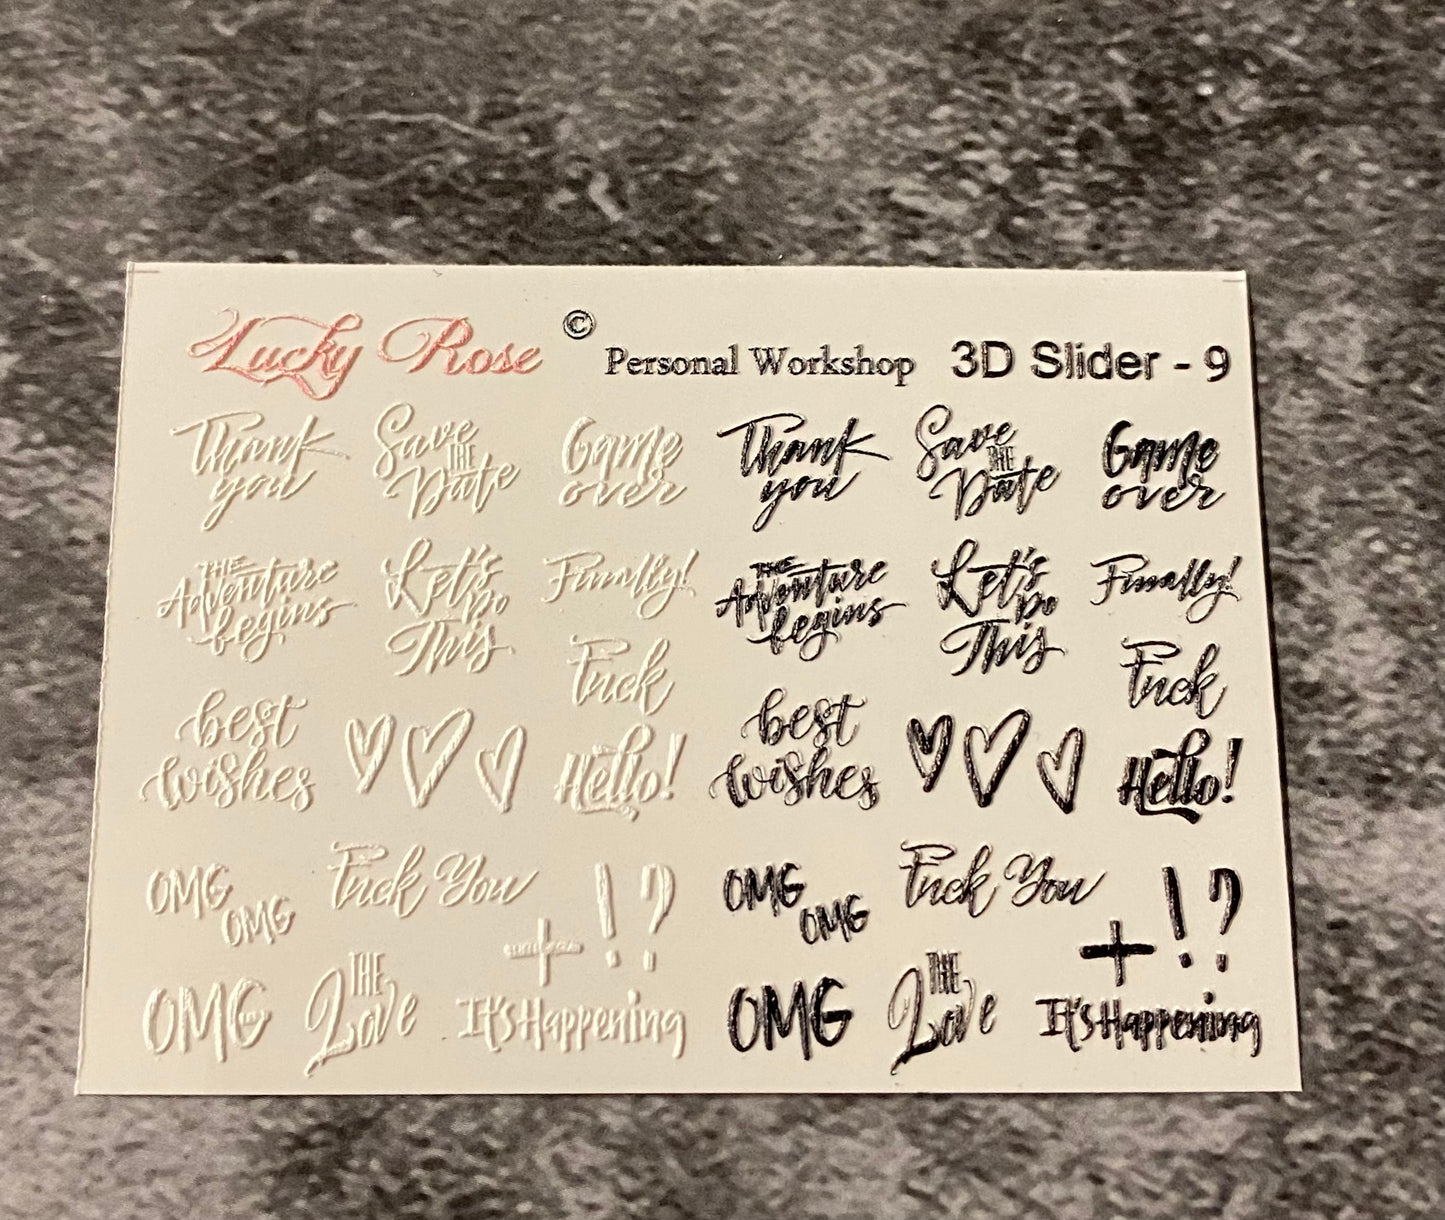 Lucky Rose © Personal Workshop 3D Slider - 9
Thank
you
Save
THE
Date
Game
over
Thank
you
Save
THE
Date
Game
over
THE
Adventure
begins
Let's
Do
This
Finally!
Fuck
THE
Adventure
begins
Let's
Do
This
Finally!
Fuck
best
wishes
Hello!
best
wishes
Hello!
OMG
OMG
Fuck You
+ ! ?
OMG
OMG
Fuck You
+ ! ?
OMG
THE
Love
It's Happening
OMG
THE
Love
It's Happening